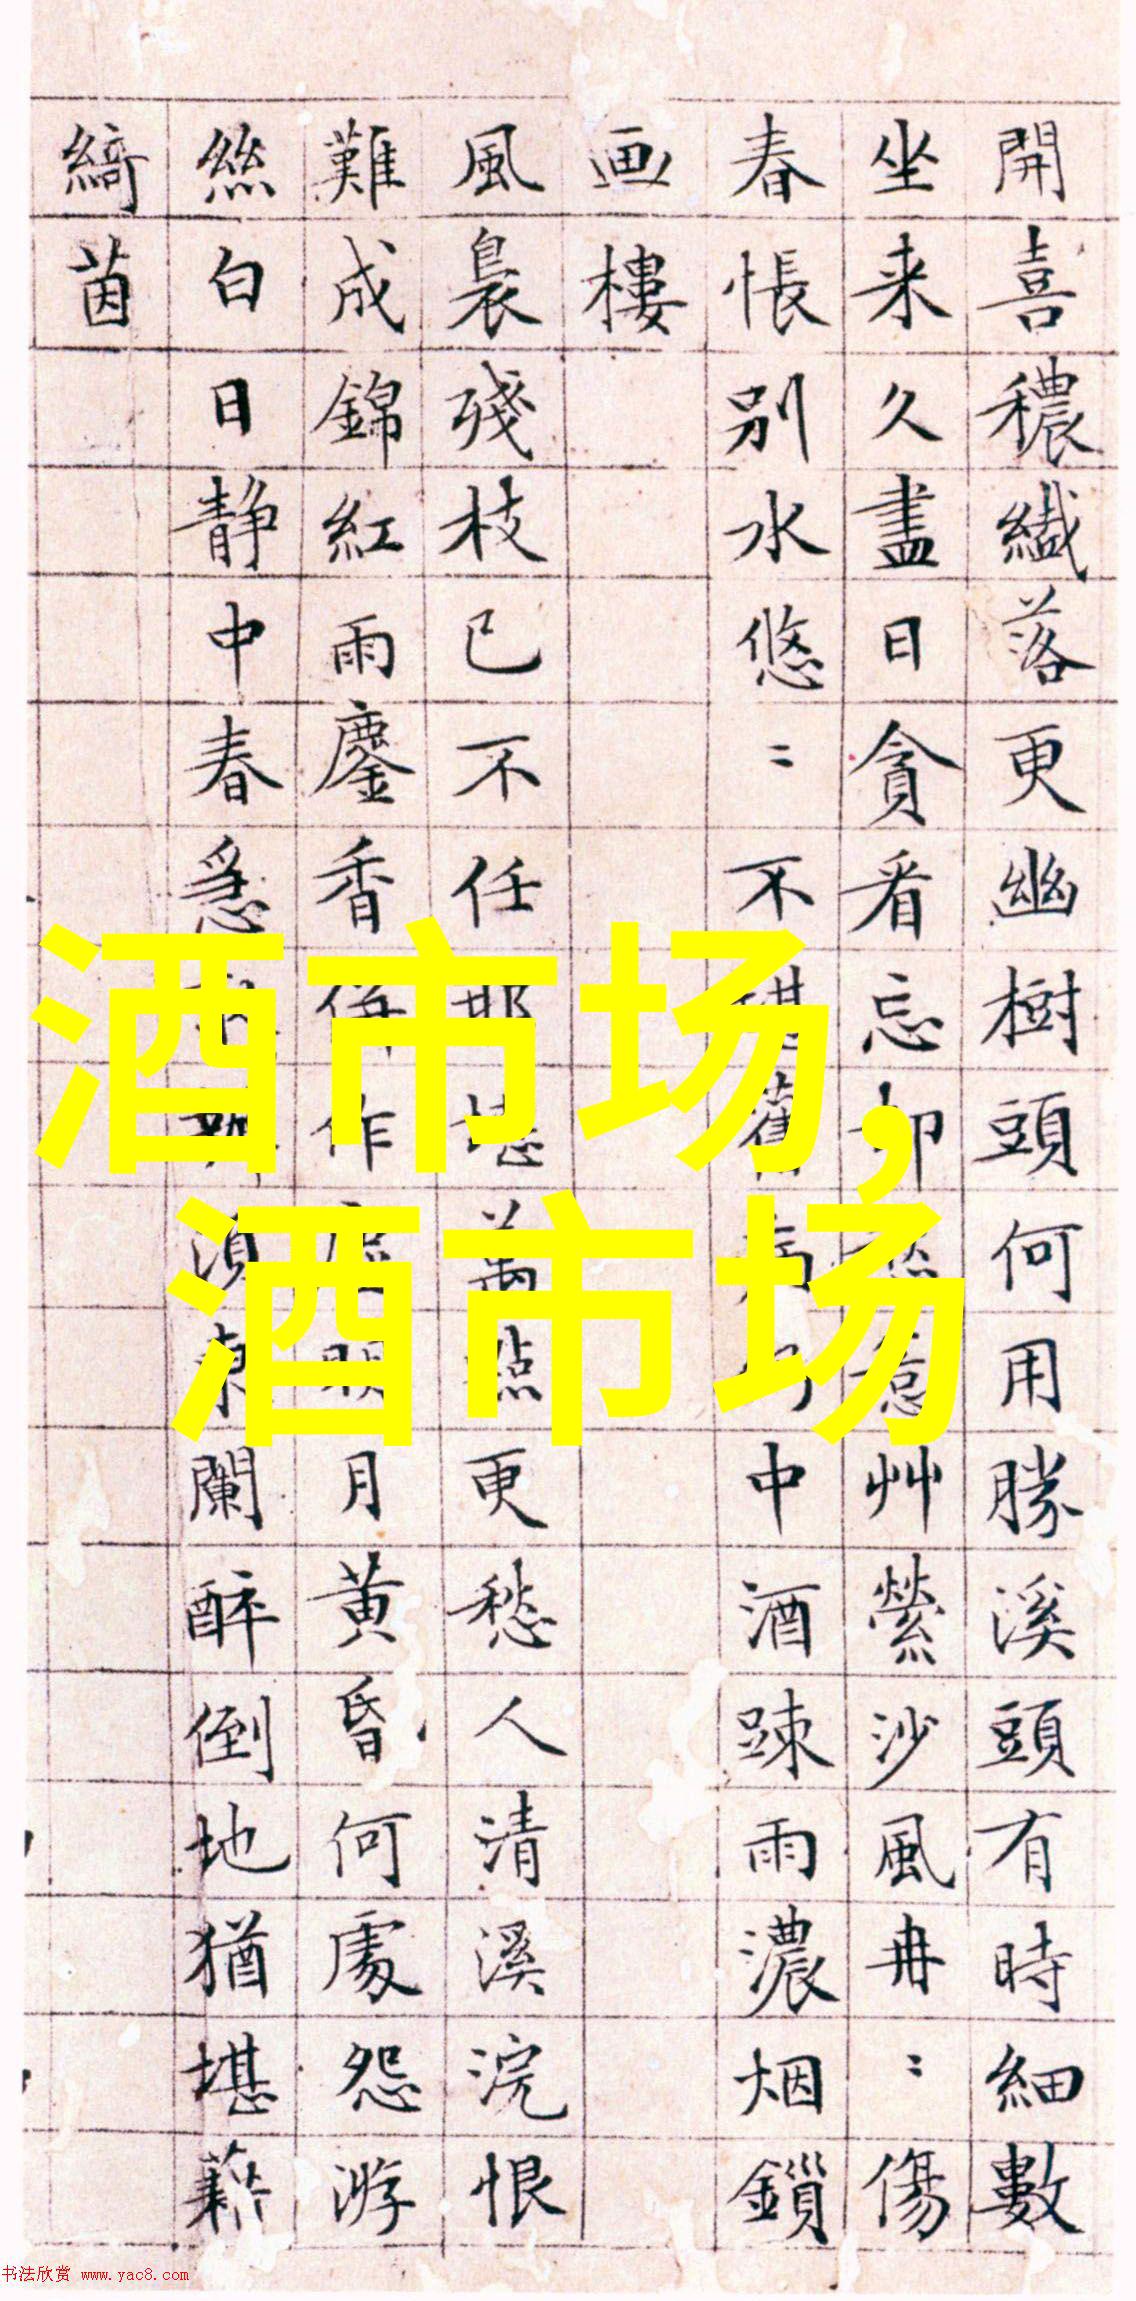 開喜穠纖落更幽樹頭何用勝溪頭有時細數
坐来久盡日貪看忘却愁惹艸縈沙風冉〻傷
春悵別水悠〻不堪舊病仍中酒踈雨濃烟鎖
画樓
風裊殘枝已不任那堪萬點更愁人清溪浣恨
難成錦紅雨鏖香併作塵明月黄昏何處怨游
絲白日静中春急須東闌醉倒地猶堪藉
綺茵
酒市场,
酒市场
书法欣赏 www.yac8.com